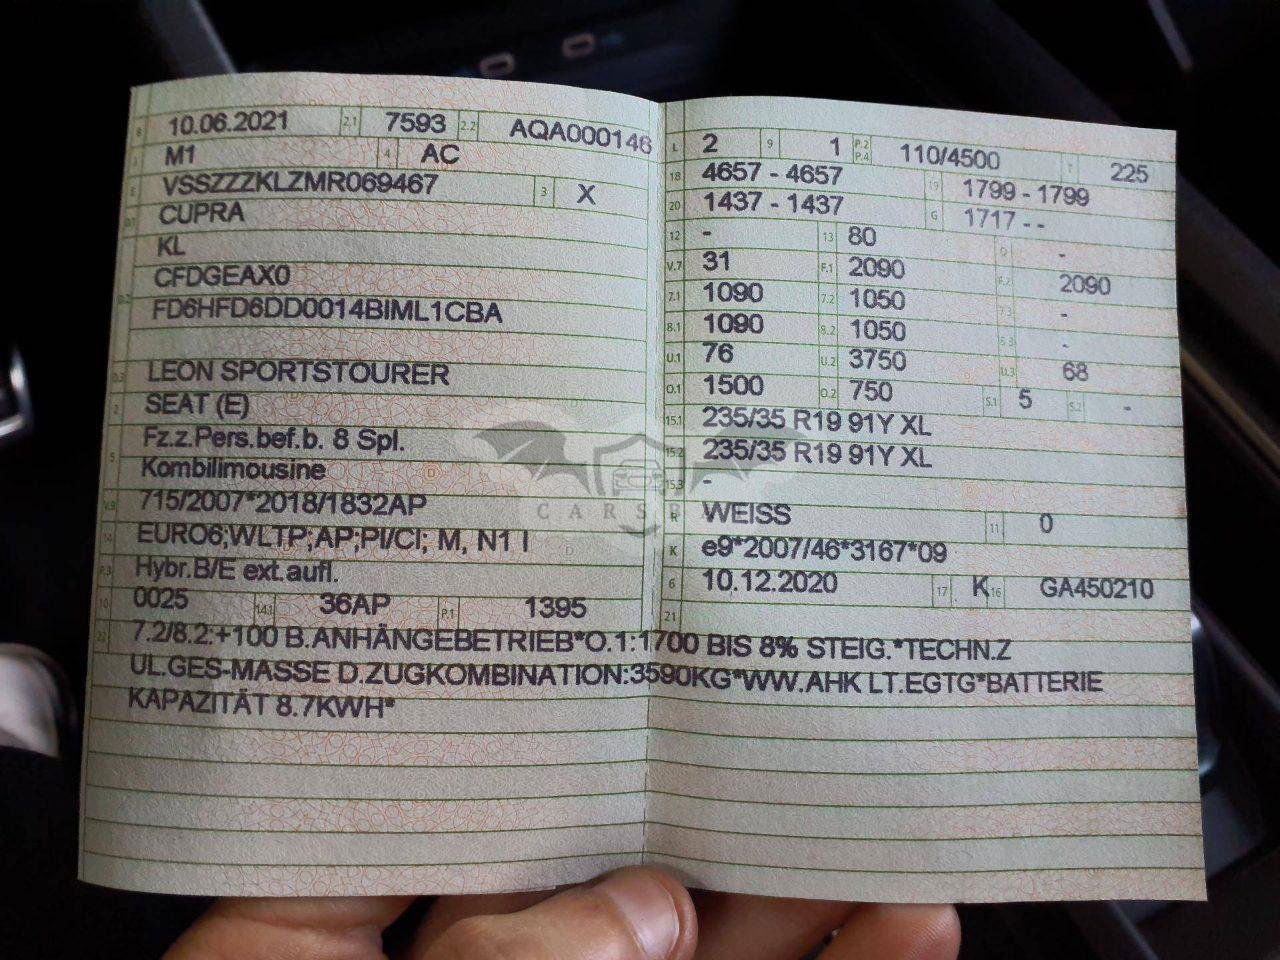 B 10.06.2021 2.1 7593 2.2 AQA000146
J M1 4 AC
E VSSZZZKLZMR069467 3 X
D.1 CUPRA
KL
D.2 CFDGEAX0
FD6HFD6DD0014BIML1CBA
D.3 LEON SPORTSTOURER
2 SEAT (E)
5 Fz.z.Pers.bef.b. 8 Spl.
Kombilimousine
V.9 715/2007*2018/1832AP
14 EURO6;WLTP;AP;PI/CI; M, N1 I
P.3 Hybr.B/E ext.aufl.
10 0025 14.1 36AP P.1 1395
22 7.2/8.2:+100 B.ANHÄNGEBETRIEB*O.1:1700 BIS 8% STEIG.*TECHN.Z
UL.GES-MASSE D.ZUGKOMBINATION:3590KG*WW.AHK LT.EGTG*BATTERIE
KAPAZITÄT 8.7KWH*
L 2 9 1 P.2 P.4 110/4500 T 225
18 4657 - 4657 19 1799 - 1799
20 1437 - 1437 G 1717 - -
12 - 13 80 Q -
V.7 31 F.1 2090 F.2 2090
7.1 1090 7.2 1050 7.3 -
8.1 1090 8.2 1050 8.3 -
U.1 76 U.2 3750 U.3 68
O.1 1500 O.2 750 S.1 5 S.2 -
15.1 235/35 R19 91Y XL
15.2 235/35 R19 91Y XL
15.3 -
R WEISS 11 0
K e9*2007/46*3167*09
6 10.12.2020 17 K 16 GA450210
21